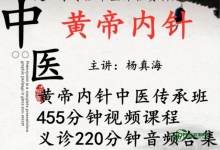 中医
黄帝内针
主讲：杨真海
黄帝内针中医传承班
455分钟视频课程
义诊220分钟音频合集